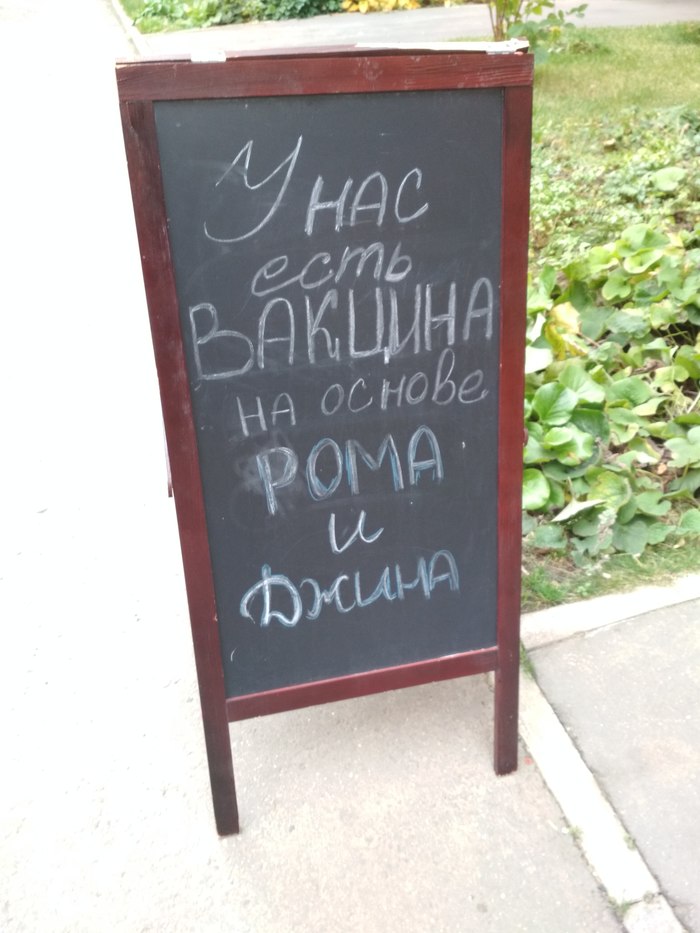 У НАС
есть
ВАКЦИНА
на основе
РОМА
и
ДЖИНА